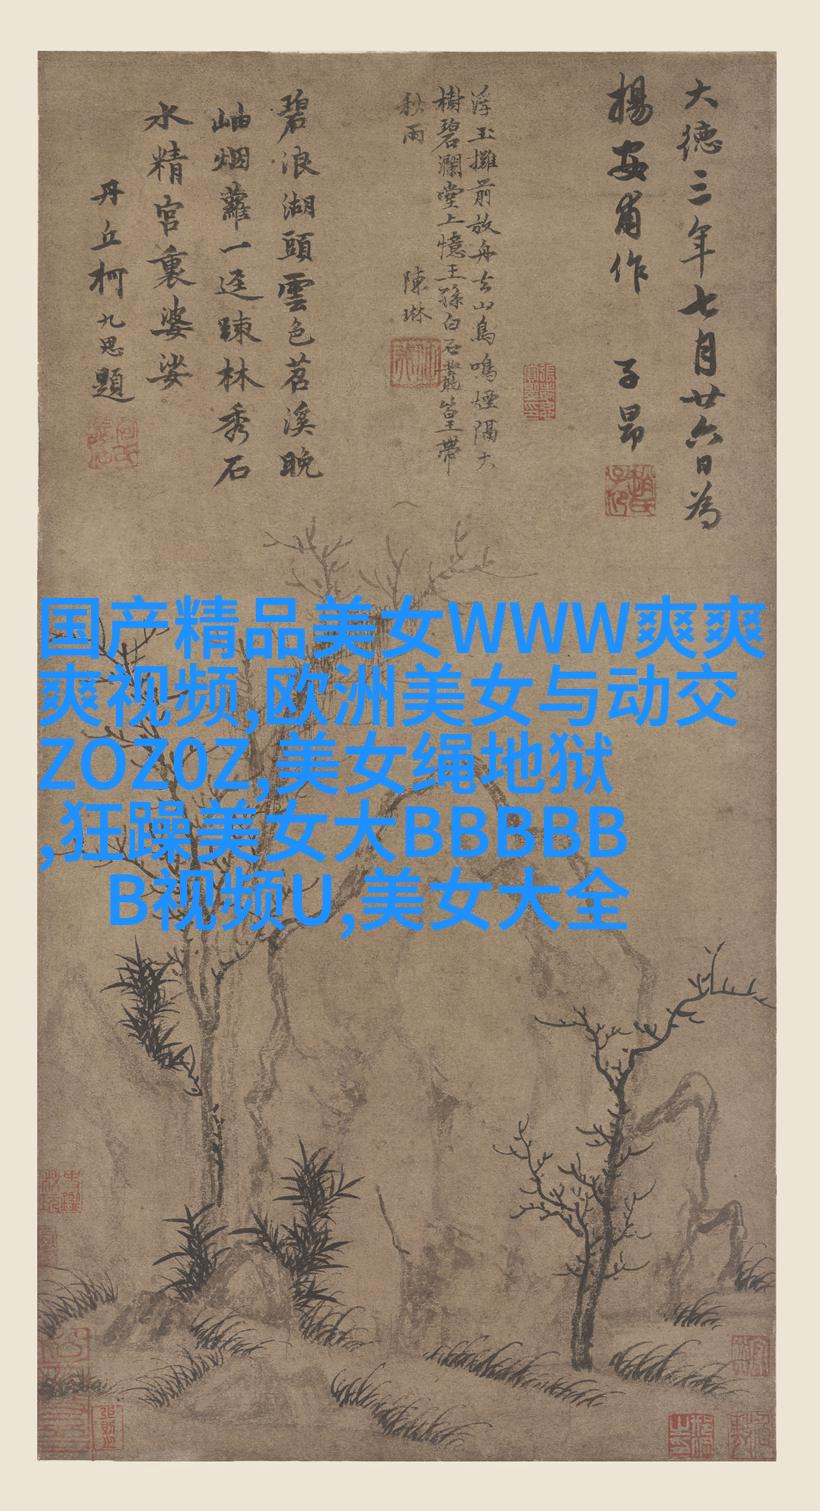 大德三年七月廿六日為
楊安甫作 子昂
浮玉攤前放舟去山鳥鳴煙隔大
樹碧瀾堂上憶王孫白石叢篁帶
秋雨 陳琳
碧浪湖頭雲色苕溪晚
岫烟蘿一逕踈林秀石
水精宮裏婆娑
丹丘柯九思題
国产精品美女WWW爽爽
爽视频,欧洲美女与动交
ZOZ0Z,美女绳地狱
,狂躁美女大BBBBB
B视频U,美女大全